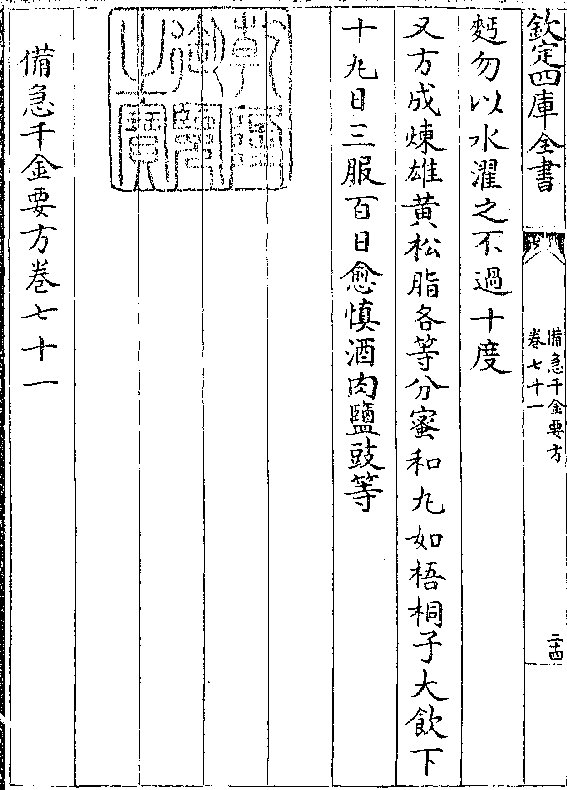 欽定四庫全書
備急千金要方
卷七十一
二十四
麫勿以水濯之不過十度
又方成煉雄黄松脂各等分蜜和丸如梧桐子大飲下
十丸日三服百日愈慎酒肉鹽豉等
乾隆
御覽
之寶
備急千金要方卷七十一